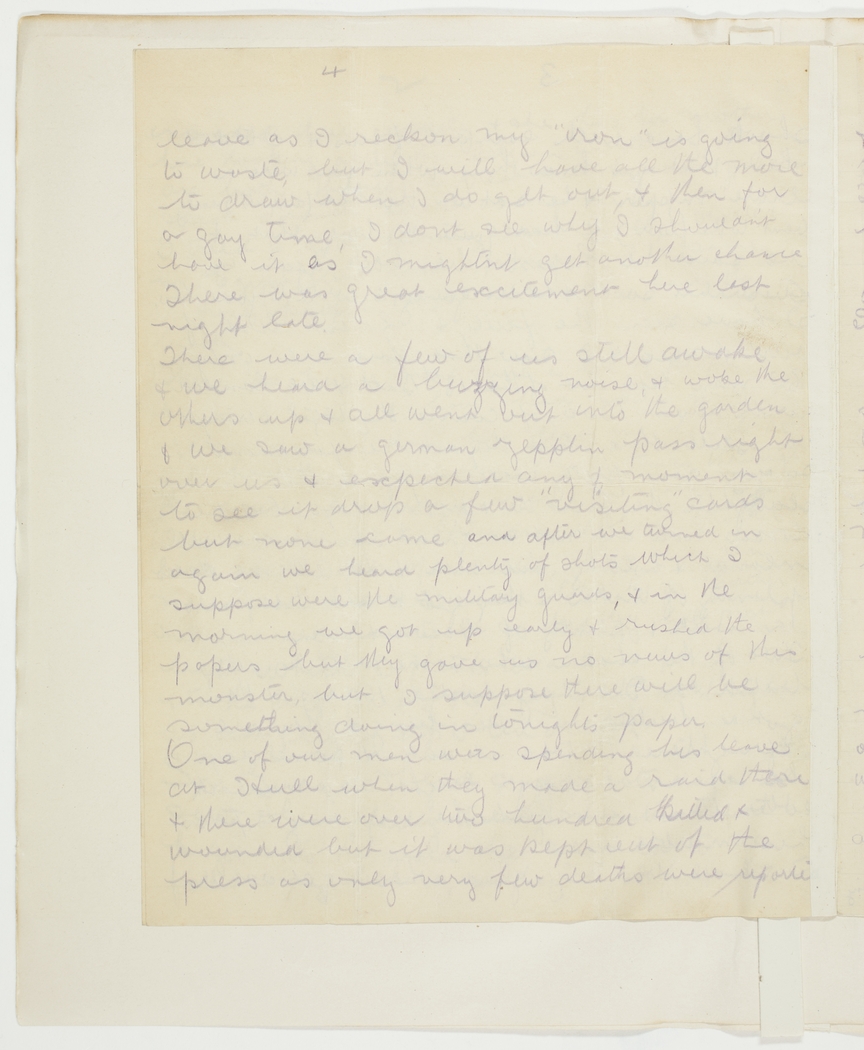 4
leave as I reckon my "iron" is going
to waste, but I will have all the more
to draw when I do get out, & then for
a gay time, I dont see why I shouldnt
have it as I mightnt get another chance
There was great excitement here last
night late.
There were a few of us still awake
& we heard a buzzing noise, & woke the
others up & all went out into the garden
& we saw a german zepplin pass right
over us & excpected any moment
to see it drop a few "visiting" cards
but none came and after we turned in
again we heard plenty of shots which I
suppose were the military guards, & in the
morning we got up early & rushed the
papers but they gave us no news of this
monster, but I suppose there will be
something doing in tonights paper.
One of our men was spending his leave
at Hull when they made a raid there
& there were over two hundred killed &
wounded but it was kept out of the
press as only very few deaths were reporte